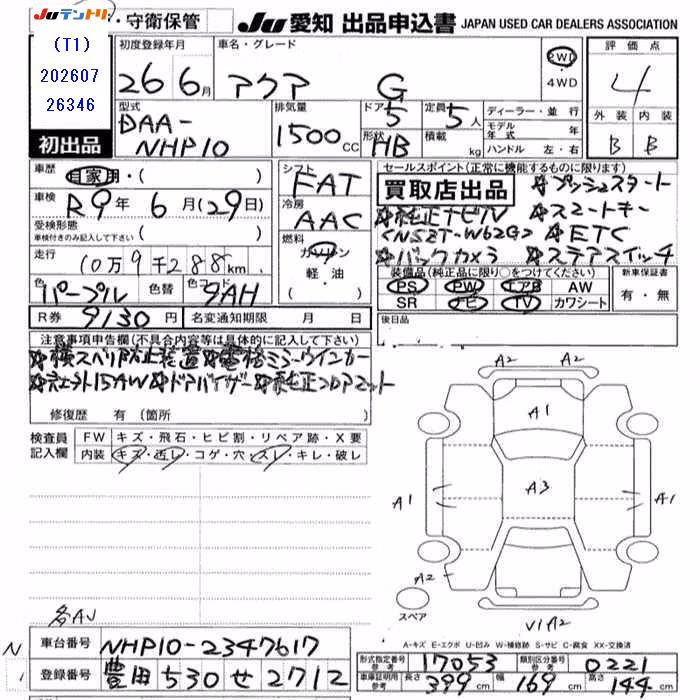 JUテントリ ・守衛保管
JU 愛知 出品申込書 JAPAN USED CAR DEALERS ASSOCIATION
(T1)
202607
26346
初出品
初度登録年月 車名・グレード
26 6月 アクア G
2WD
・
4WD
評価点
4
外装 内装
B B
型式 排気量 ドア 定員 ディーラー・並行
DAA-
NHP10
1500cc
5 5人
形状 積載
HB kg
モデル年式 年
ハンドル 左・右
車歴 自家用・( )
車検 R9年 6月(29日)
受検形態
車検付きのみ記入して下さい ( )
走行 10万9千288km
色 パープル 色替 色コード 9AH
R券 9130円 名変通知期限 月 日
シフト FAT
冷房 AAC
燃料
ガソリン
軽・油
・( )
セールスポイント(正常に機能するものに限ります)
買取店出品 ☆プッシュスタート
☆純正ナビTV ☆スマートキー
<NSZT-W62G> ☆ETC
☆バックカメラ ☆ステアスイッチ
装備品(純正品に限り○をつけてください) 新車保証書
PS PW エアB AW 有・無
SR ナビ TV カワシート
後日品
注意事項申告欄(不具合内容等は具体的に記入して下さい)
☆横スベリ防止装置☆電格ミラーウインカー
☆社外15AW☆ドアバイザー☆純正フロアマット
修復歴 有(箇所 )
検査員 FW キズ・飛石・ヒビ割・リペア跡・X要
記入欄 内装 キズ・汚レ・コゲ・穴・スレ・キレ・破レ
A2 A2
A1
A1 A3 A1
A2
スペア
V1A2
各AJ
A-キズ E-エクボ U-凹み W-補修跡 S-サビ C-腐食 XX-交換済
N 車台番号 NHP10-2347617
登録番号 豊田530せ2712
形式指定番号 参考 17053 類別区分番号 参考 0221
車庫証明用 参考 長さ 399cm 幅 169cm 高さ 144cm